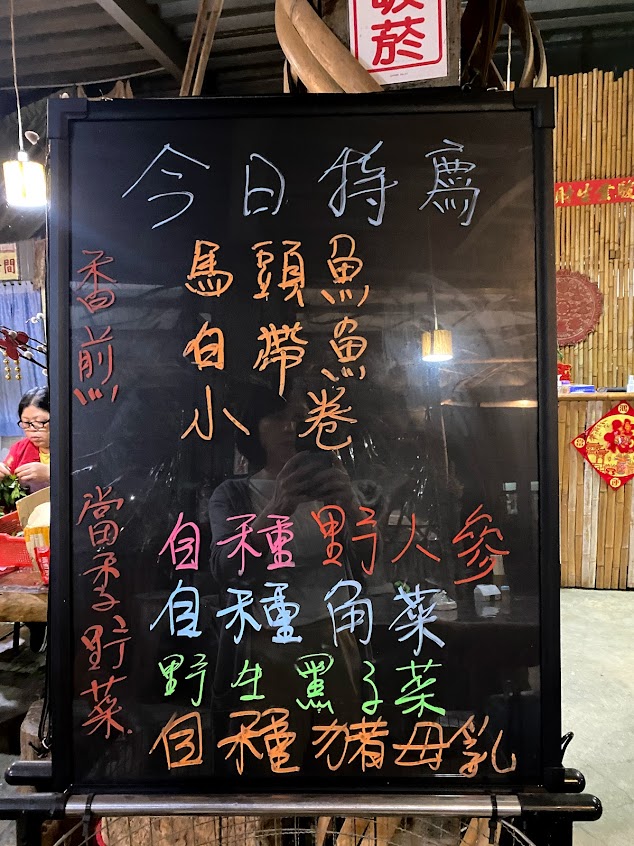 菸
今日特薦
香煎
馬頭魚
白帶魚
小卷
當季野菜
自種野人參
自種角菜
野生黑子菜
自種豬母乳